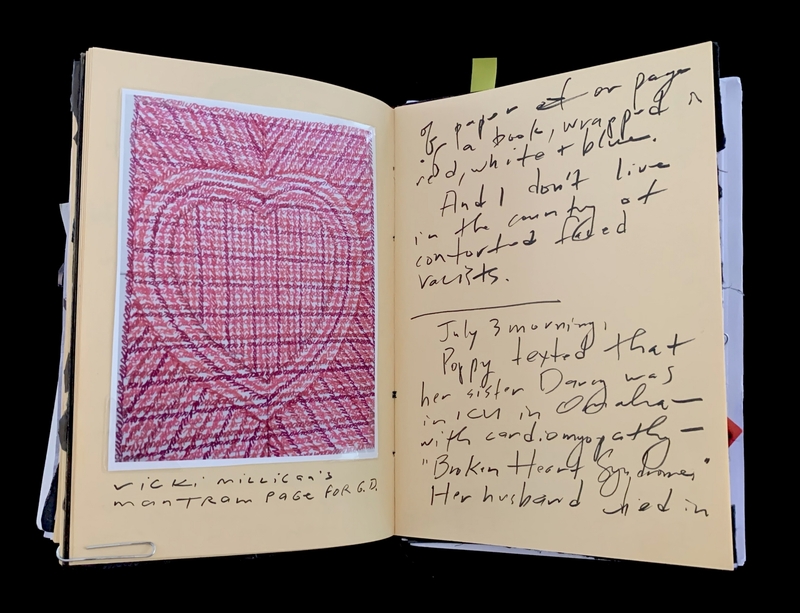 Vicki Millican's
manTram Page FOR G.D.
of paper or page
of a book, wrapped in
red, white + blue.
And I don't live
in the country of
contorted faced
racists.
July 3 morning,
Poppy texted that
her sister Darcy was
in ICU in Omaha—
with cardiomyopathy—
"Broken Heart Syndrome"
Her husband died in